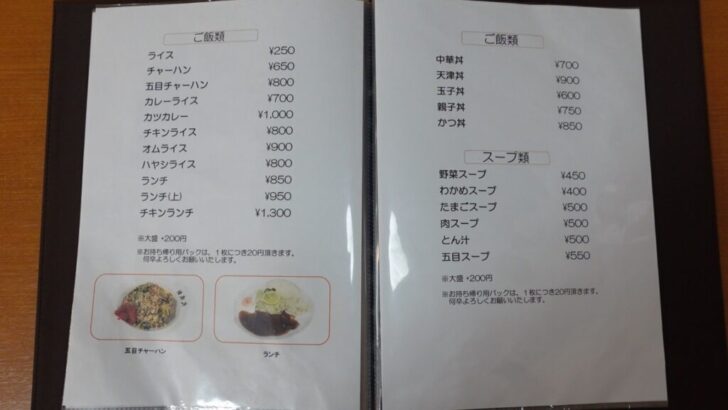 ご飯類
ライス ¥250
チャーハン ¥650
五目チャーハン ¥800
カレーライス ¥700
カツカレー ¥1.000
チキンライス ¥800
オムライス ¥900
ハヤシライス ¥800
ランチ ¥850
ランチ(上) ¥950
チキンランチ ¥1.300
※大盛 +200円
※お持ち帰り用パックは、1枚につき20円頂きます。
何卒よろしくお願いいたします。
五目チャーハン
ランチ
ご飯類
中華丼 ¥700
天津丼 ¥900
玉子丼 ¥600
親子丼 ¥750
かつ丼 ¥850
スープ類
野菜スープ ¥450
わかめスープ ¥400
たまごスープ ¥500
肉スープ ¥500
とん汁 ¥500
五目スープ ¥550
※大盛 +200円
※お持ち帰り用パックは、1枚につき20円頂きます。
何卒よろしくお願いいたします。